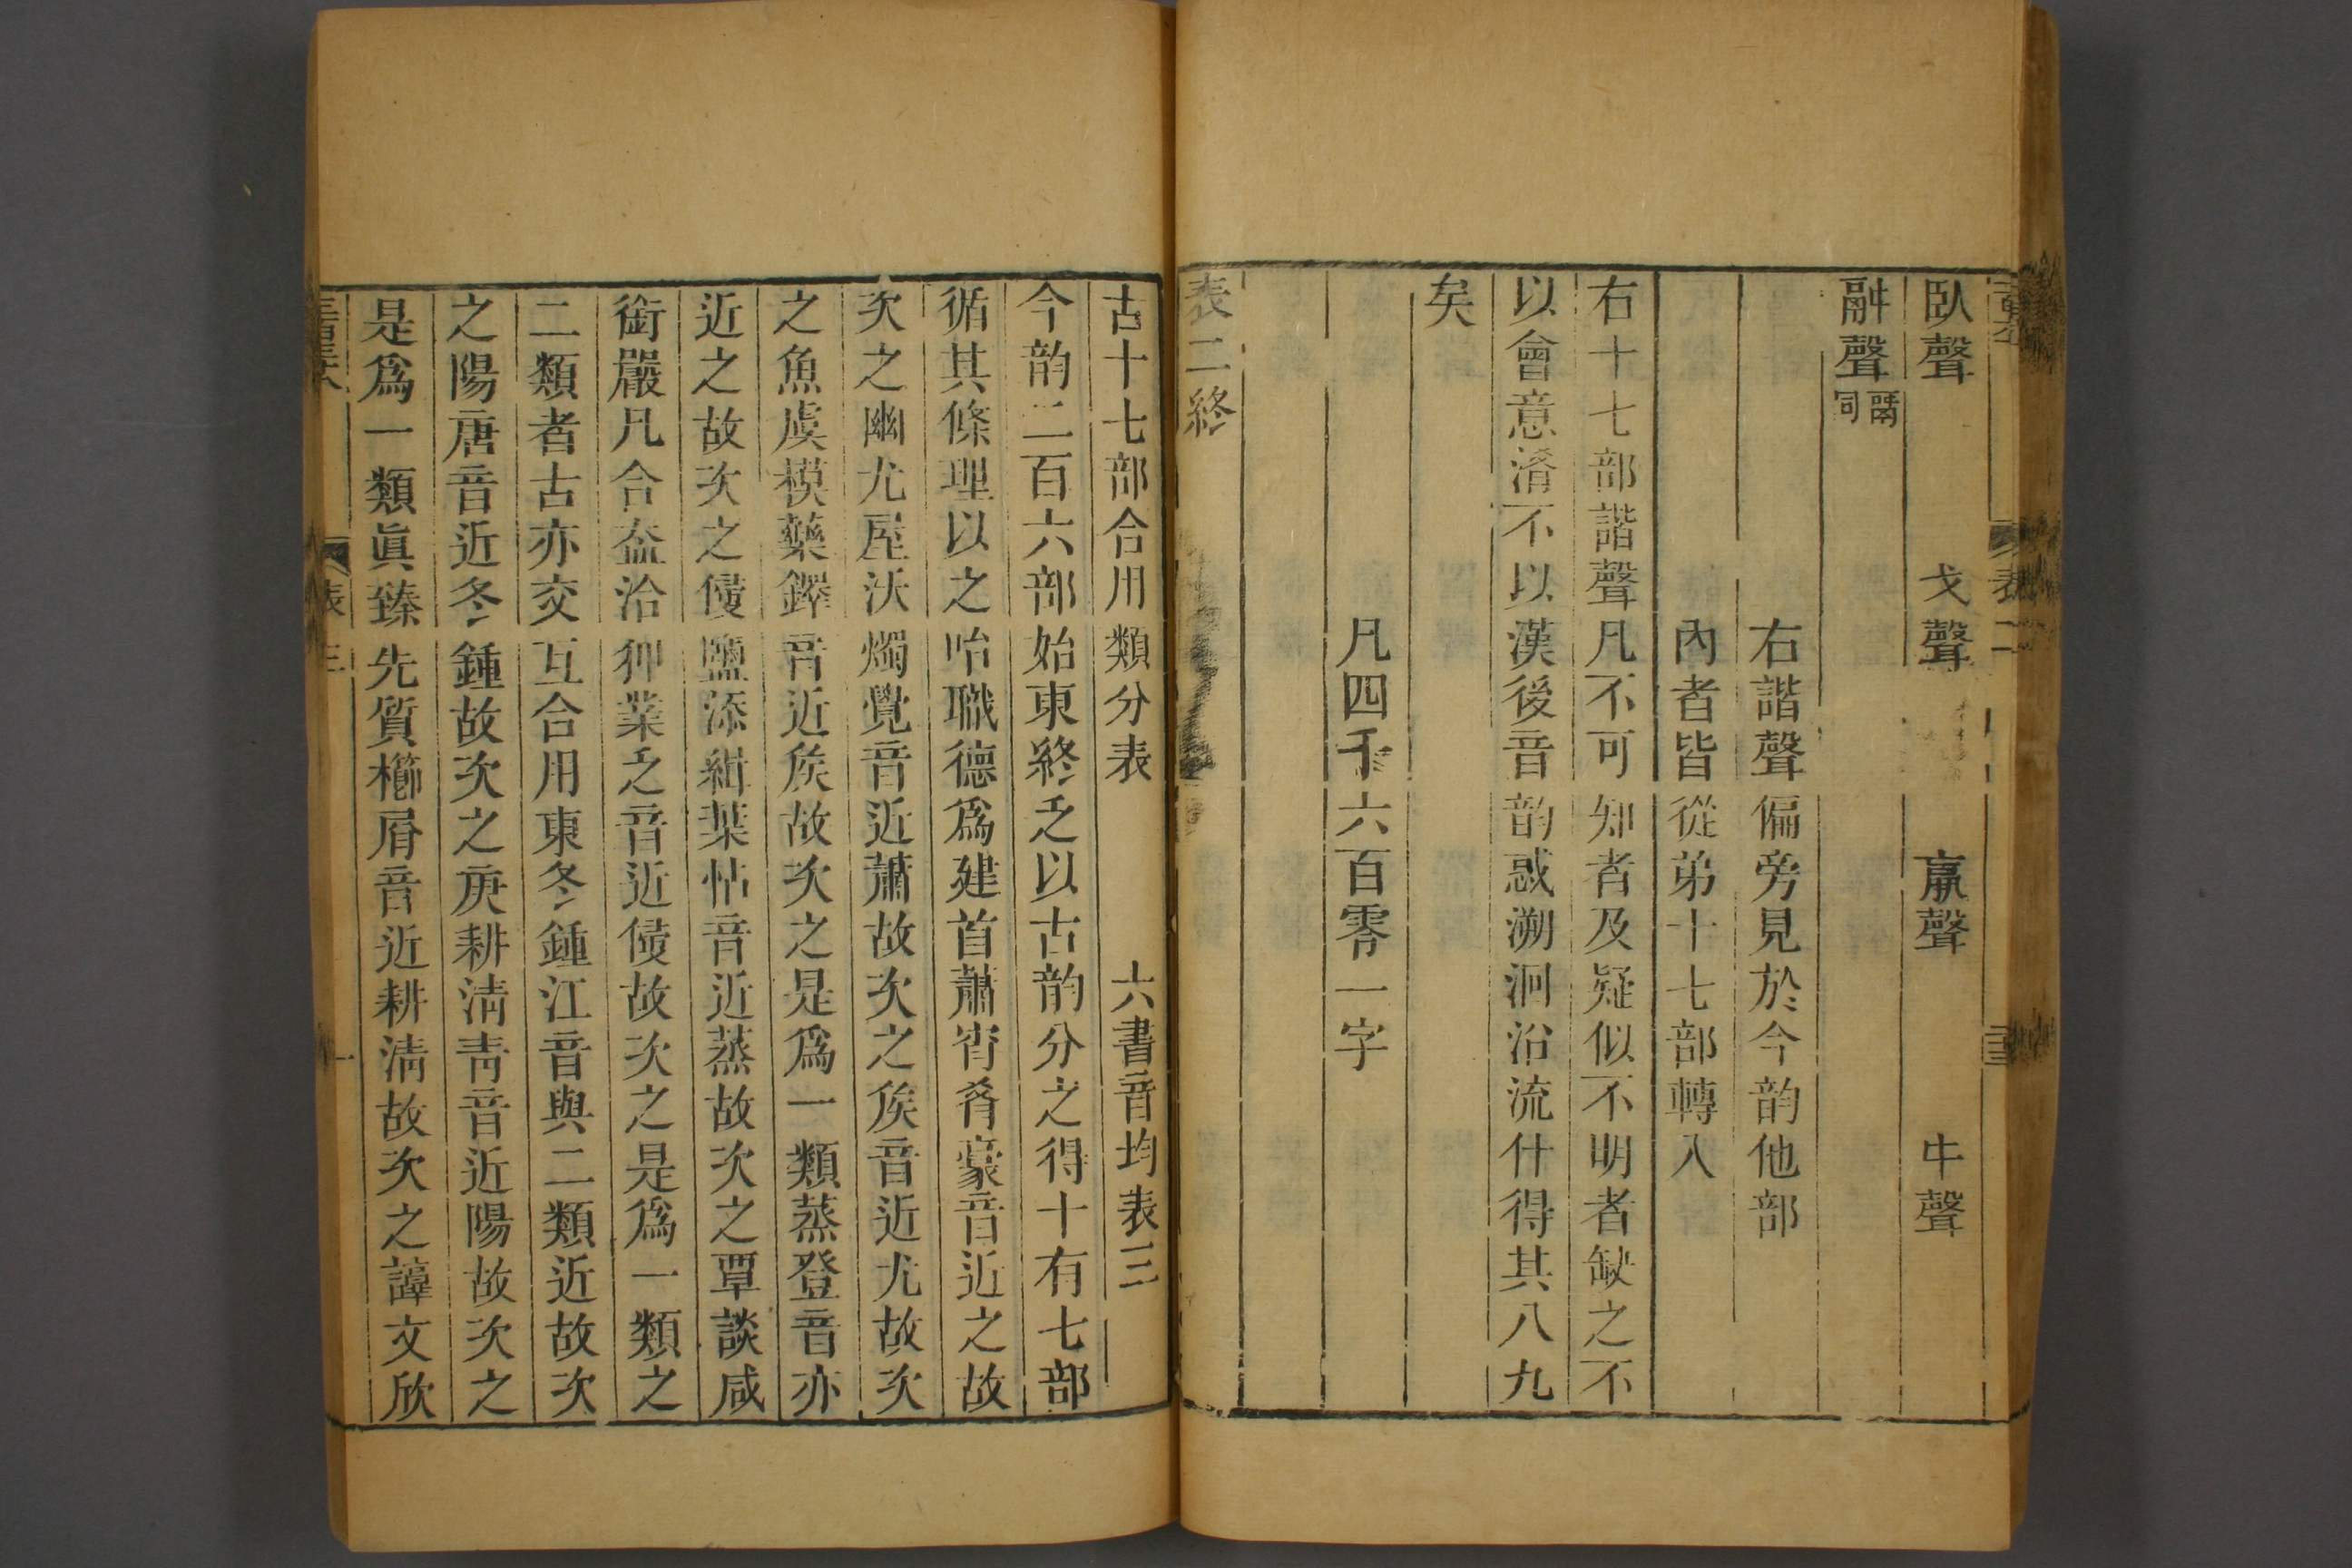 臥聲 戈聲 羸聲 㐄聲
融聲 鬲同
右諧聲偏旁見於今韵他部
內者皆從弟十七部轉入
右十七部諧聲凡不可知者及疑似不明者缺之不
以會意淆不以漢後音韵惑溯洄沿流什得其八九
矣
凡四千六百零一字
表二終
表二
古十七部合用類分表 六書音均表三
今韵二百六部始東終乏以古韵分之得十有七部
循其條理以之咍職德爲建首蕭宵肴豪音近之故
次之幽尤屋沃燭覺音近蕭故次之矦音近尤故次
之魚虞模藥鐸音近矦故次之是爲一類蒸登音亦
近之故次之侵鹽添緝葉怗音近蒸故次之覃談咸
銜嚴凡合盍洽狎業乏音近侵故次之是爲一類之
二類者古亦交互合用東冬鍾江音與二類近故次
之陽唐音近冬鍾故次之庚耕淸靑音近陽故次之
是爲一類眞臻先質櫛屑音近耕淸故次之諄文欣
表三 一